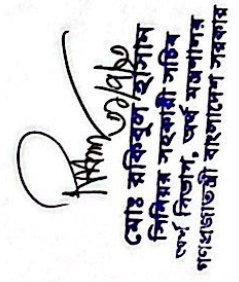 মোঃ রকিবুল হাসান
সিনিয়র সহকারী সচিব
অর্থ বিভাগ, অর্থ মন্ত্রণালয়
গণপ্রজাতন্ত্রী বাংলাদেশ সরকার